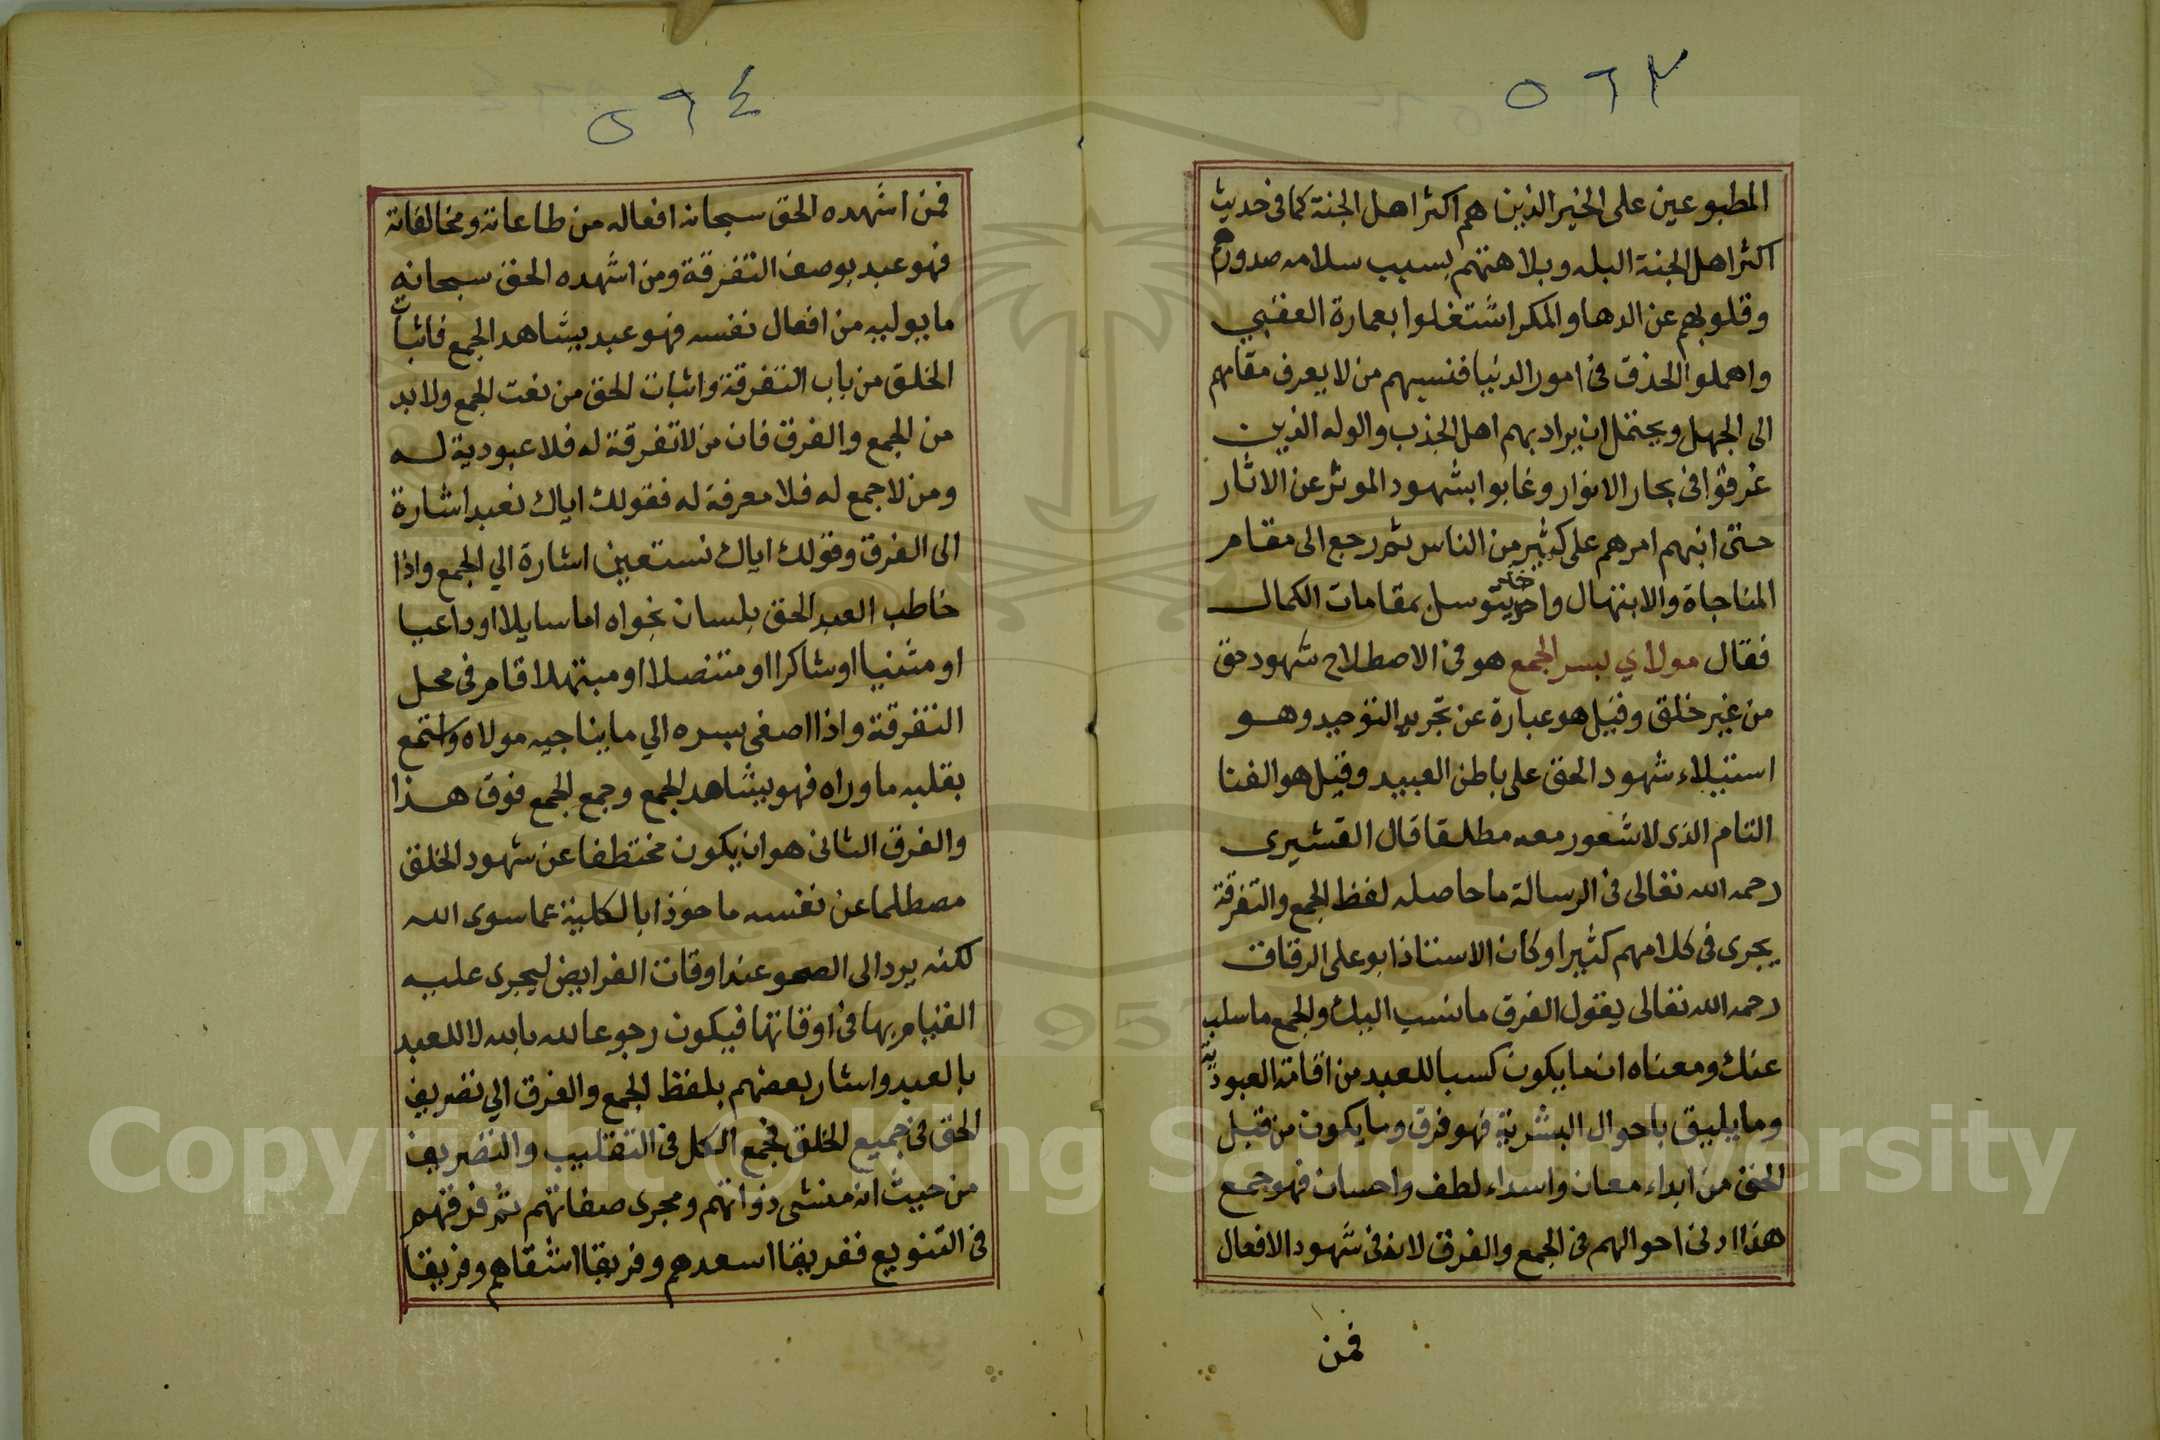 ٥٦٣
المطبوعين على الخير الذين هم اكثر اهل الجنة كما في حديث
اكثر اهل الجنة البله وبلاهتهم بسبب سلامه صدورهم
وقلوبهم عن الدها والمكر اشتغلوا بعمارة العقبي
واهملوا الحذق في امور الدنيا فنسبهم من لا يعرف مقامهم
الى الجهل ويحتمل ان يراد بهم اهل الجذب والوله الذين
غرقوا في بحار الانوار وغابوا بشهود الموثر عن الاثار
حتى انبهم امرهم على كثير من الناس ثم رجع الى مقام
المناجاة والابتهال واخذ يتوسل بمقامات الكمال
فقال مولاي بسر الجمع هو في الاصطلاح شهود حق
من غير خلق وقيل هو عبارة عن تجريد التوحيد وهو
استيلاء شهود الحق على باطن العبيد وقيل هو الفنا
التام الذى لا شعور معه مطلقا قال القشيرى
رحمه الله تعالى في الرسالة ما حاصله لفظ الجمع والتفرقة
يجرى فى كلامهم كثيرا وكان الاستاذ ابو على الدقاق
رحمه الله تعالى يقول الفرق ما نسب اليك والجمع ما سلب
عنك ومعناه ان ما يكون كسبا للعبد من اقامة العبودية
وما يليق باحوال البشرية فهو فرق وما يكون من قبل
الحق من ابداء معان واسداء لطف واحسان فهو جمع
هذا ادنى احوالهم في الجمع والفرق لانه في شهود الافعال
فمن
٥٦٤
فمن اشهده الحق سبحانه افعاله من طاعاته ومخالفاته
فهو عبد بوصف التفرقة ومن اشهده الحق سبحانه
ما يوليه من افعال نفسه فهو عبد بشاهد الجمع فاثبات
الخلق من باب التفرقة واثبات الحق من نعت الجمع ولا بد
من الجمع والفرق فان من لا تفرقة له فلا عبودية له
ومن لا جمع له فلا معرفة له فقولك اياك نعبد اشارة
الى الفرق وقولك اياك نستعين اشارة الي الجمع واذا
خاطب العبد الحق بلسان نجواه اما سايلا او داعيا
او مثنيا او شاكرا او متنصلا او مبتهلا قام في محل
التفرقة واذا اصغى بسره الي ما يناجيه مولاه واستمع
بقلبه ما وراه فهو بشاهد الجمع وجمع الجمع فوق هذا
والفرق الثانى هو ان يكون مختطفا عن شهود الخلق
مصطلما عن نفسه ماخوذا بالكلية عما سوى الله
لكنه يرد الى الصحو عند اوقات الفرايض ليجرى عليه
القيام بها في اوقاتها فيكون رجوعا لله بالله لا للعبد
بالعبد واشار بعضهم بلفظ الجمع والفرق الي تصريف
الحق في جميع الخلق فجمع الكل في التقليب والتصريف
من حيث انه منشى ذواتهم ومجرى صفاتهم ثم فرقهم
في التنويع ففريقا اسعدهم وفريقا اشقاهم وفريقا
Copyright © King Saud University
1957